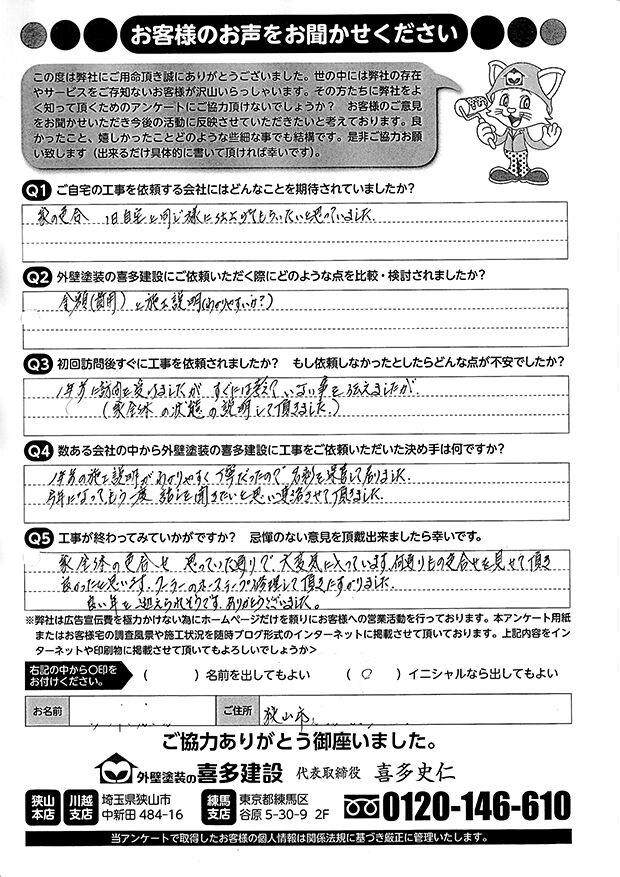 お客様のお声をお聞かせください
この度は弊社にご用命頂き誠にありがとうございました。世の中には弊社の存在
やサービスをご存知ないお客様が沢山いらっしゃいます。その方たちに弊社をよ
く知って頂くためのアンケートにご協力頂けないでしょうか？ お客様のご意見
をお聞かせいただき今後の活動に反映させていただきたいと考えております。良
かったこと、嬉しかったことどのような些細な事でも結構です。是非ご協力お願
い致します（出来るだけ具体的に書いて頂ければ幸いです）。
Q1 ご自宅の工事を依頼する会社にはどんなことを期待されていましたか？
家の色合 旧自宅と同じ様に仕上げてもらいたいと思っていました。
Q2 外壁塗装の喜多建設にご依頼いただく際にどのような点を比較・検討されましたか？
金額(費用)と施工説明(わかりやすいか？)
Q3 初回訪問後すぐに工事を依頼されましたか？ もし依頼しなかったとしたらどんな点が不安でしたか？
1年前に訪問を受けましたが すぐには考えていない事を伝えましたが、
(家全体の状態の説明して頂きました。)
Q4 数ある会社の中から外壁塗装の喜多建設に工事をご依頼いただいた決め手は何ですか？
1年前の施工説明がわかりやすく丁寧だったので 名刺を保管して居りました。
今年になってもう一度 話しを聞きたいと思い連絡させて頂きました。
Q5 工事が終わってみていかがですか？ 忌憚のない意見を頂戴出来ましたら幸いです。
家全体の色合せ 思っていた通りで、大変気に入っています。何通りもの色合せを見せて頂き
良かったと思います。クーラーのホーステープ修理して頂きたすかりました。
良い年を迎えられそうです。ありがとうございました。
※弊社は広告宣伝費を極力かけない為にホームページだけを頼りにお客様への営業活動を行っております。本アンケート用紙
またはお客様宅の調査風景や施工状況を随時ブログ形式のインターネットに掲載させて頂いております。上記内容をイン
ターネットや印刷物に掲載させて頂いてもよろしいでしょうか>
右記の中から〇印を
お付けください。
( ) 名前を出してもよい ( ○ ) イニシャルなら出してもよい
お名前
ご住所 狭山市
ご協力ありがとう御座いました。
外壁塗装の喜多建設 代表取締役 喜多史仁
狭山本店 川越支店 埼玉県狭山市中新田 484-16
練馬支店 東京都練馬区谷原 5-30-9 2F
0120-146-610
当アンケートで取得したお客様の個人情報は関係法規に基づき厳正に管理いたします。